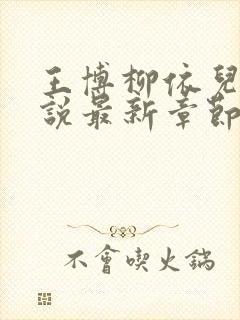 王博柳依兒
說最新章節
不會喫火鍋